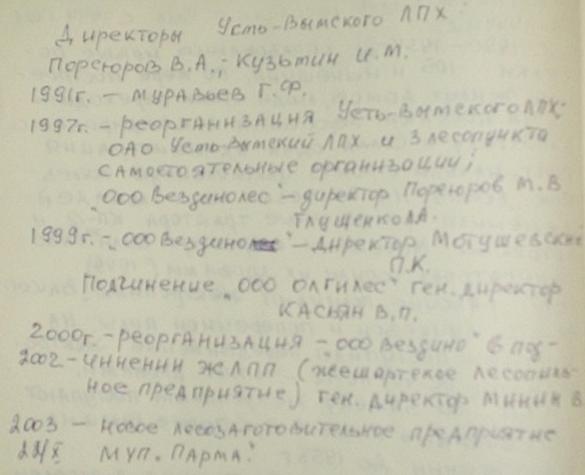 Директоры Усть-Вымского ЛПХ
Порсюров В.А.; Кузьтин И.М.
1991г. – Муравьев Г.Ф.
1997г. – реорганизация Усть-Вымского ЛПХ:
ОАО Усть-Вымский ЛПХ и 3 лесопункта
самостоятельные организации;
„ООО Вездинолес" – директор Порсюров М.В
Глущенко А.
1999г. – „ООО Вездинолес" – директор Могушевский
П.К.
Подчинение „ООО Олгилес" ген. директор
Касьян В.П.
2000г. – реорганизация – „ООО Вездино" в под-
2002 – чинении ЖЛПП (Жешартское лесопиль-
ное предприятие) ген. директор Минин В
2003 – новое лесозаготовительное предприятие
МУП „Парма"